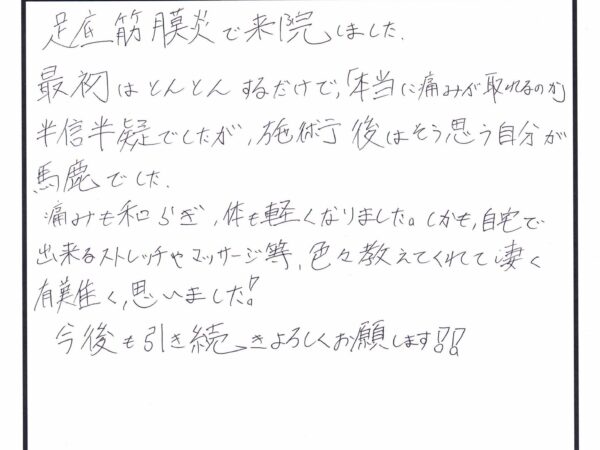 足底筋膜炎で来院しました.
最初はとんとんするだけで,「本当に痛みが取れるのか」
半信半疑でしたが,施術後はそう思う自分が
馬鹿でした.
痛みも和らぎ,体も軽くなりました。しかも,自宅で
出来るストレッチやマッサージ等,色々教えてくれて凄く
有難く,思いました!
今後も引き続きよろしくお願します!!